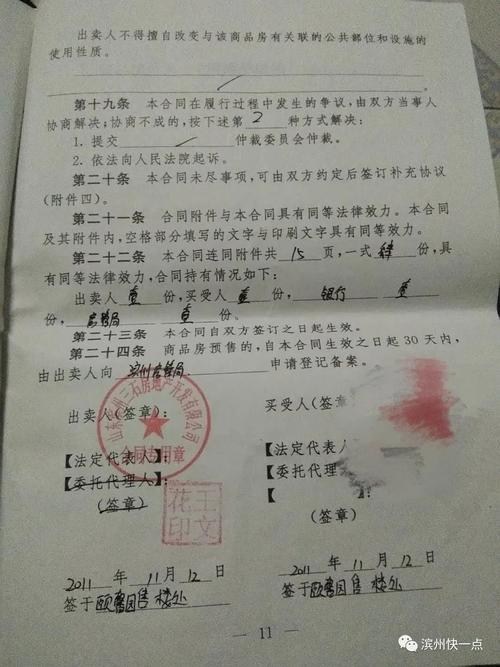 出卖人不得擅自改变与该商品房有关联的公共部位和设施的
使用性质。
第十九条 本合同在履行过程中发生的争议,由双方当事人
协商解决;协商不成的,按下述第 2 种方式解决:
1. 提交 仲裁委员会仲裁。
2. 依法向人民法院起诉。
第二十条 本合同未尽事项,可由双方约定后签订补充协议
(附件四)。
第二十一条 合同附件与本合同具有同等法律效力。本合同
及其附件内,空格部分填写的文字与印刷文字具有同等效力。
第二十二条 本合同连同附件共 15 页,一式 肆 份,具
有同等法律效力,合同持有情况如下:
出卖人 壹 份,买受人 壹 份, 银行 壹
份, 房管局 壹 份。
第二十三条 本合同自双方签订之日起生效。
第二十四条 商品房预售的,自本合同生效之日起30天内,
由出卖人向 滨州房管局 申请登记备案。
出卖人(签章):
买受人(签章
山东滨州三石房地产开发有限公司
合同专用章
【法定代表人】:
【法定代表人
【委托代理人】:
【委托代理
【 】:
(签章)
(签章)
王文
花印
2011 年 11 月 12 日
2011 年 11 月 12 日
签于颐馨园售楼处
签于颐馨园售楼处
— 11 —
滨州快一点